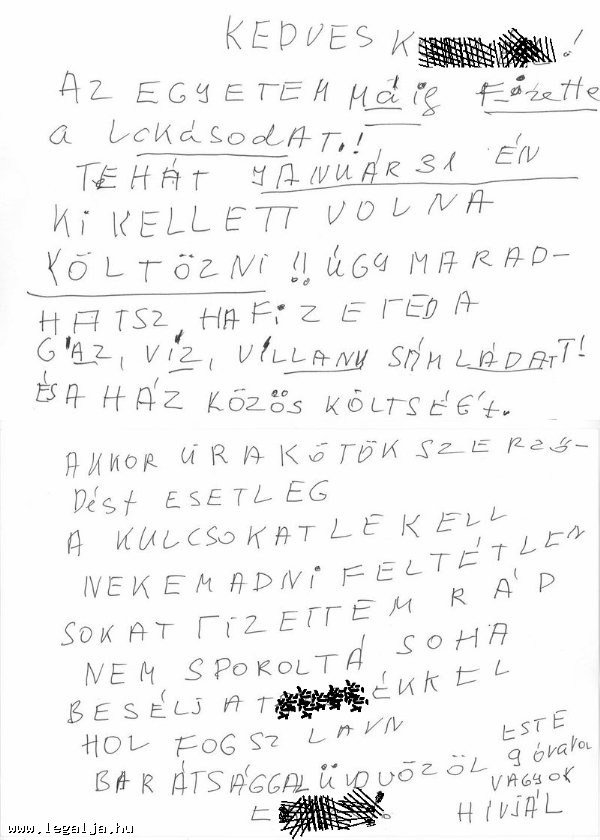 KEDVES K !
AZ EGYETEM MáIG FIzette
a LaKásodAT.!
TEHÁT JANUÁR 31 ÉN
KI KELLETT VOLNA
KÖLTÖZNI !! ÚGY MARAD-
HATSZ, HA FIZETED A
GÁZ, VÍZ, VILLANY SÁMLÁDATT!
ÉS A HÁZ KÖZÖS KÖLTSÉGÉt.
AKKOR ÚRA KÖTÖK SZERZŐ-
Dést ESETLEG
A KULCSOKAT LE KELL
NEKEM ADNI FELTÉTLEN
SOKAT FIZETTEM RÁD
NEM SPOROLTÁ SOHA
BESÉLJ A T ÉKKEL
HOL FOGSZ LAVN
BARÁTSÁGGAL ÜDVÖZÖL
E
ESTE
9 óraкor
VAGYOK
HIVJÁL
www.legalja.hu